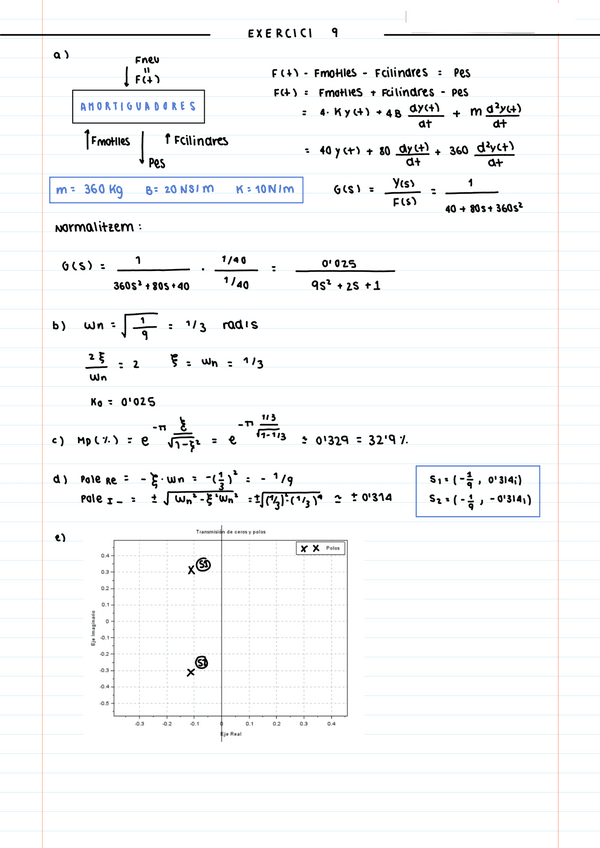 EXERCICI 9
a)
Fneu
=
F(t)
AMORTIGUADORES
Fmolles
Fcilindres
Pes
F(t) - Fmolles - Fcilindres = Pes
F(t) = Fmolles + Fcilindres - Pes
= 4·Ky(t) + 4B dy(t)/dt + m d²y(t)/dt
= 40y(t) + 80 dy(t)/dt + 360 d²y(t)/dt
m = 360 Kg B = 20 NS/m K = 10N/m
G(s) = Y(s)/F(s) = 1/(40 + 80s + 360s²)
Normalitzem:
G(s) = 1/(360s² + 80s + 40) · (1/40)/(1/40) = 0'025/(9s² + 2s + 1)
b) Wn = √(1/9) = 1/3 rad/s
2ξ/Wn = 2 ξ = Wn = 1/3
K0 = 0'025
c) MP(%) = e^(-π ξ/√(1-ξ²)) = e^(-π (1/3)/√(1-1/3)) ≃ 0'329 = 32'9%
d) Pole Re = -ξ·Wn = -(1/3)² = -1/9
Pole I- = ± √(Wn² - ξ²Wn²) = ±√((1/3)² - (1/3)⁴) ≃ ±0'314
S1 = (-1/9, 0'314i)
S2 = (-1/9, -0'314i)
e)
Transmisión de ceros y polos
x x Polos
S1
S2
0.4
0.3
0.2
0.1
0
-0.1
-0.2
-0.3
-0.4
-0.5
Eje Imaginario
-0.3 -0.2 -0.1 0 0.1 0.2 0.3 0.4
Eje Real